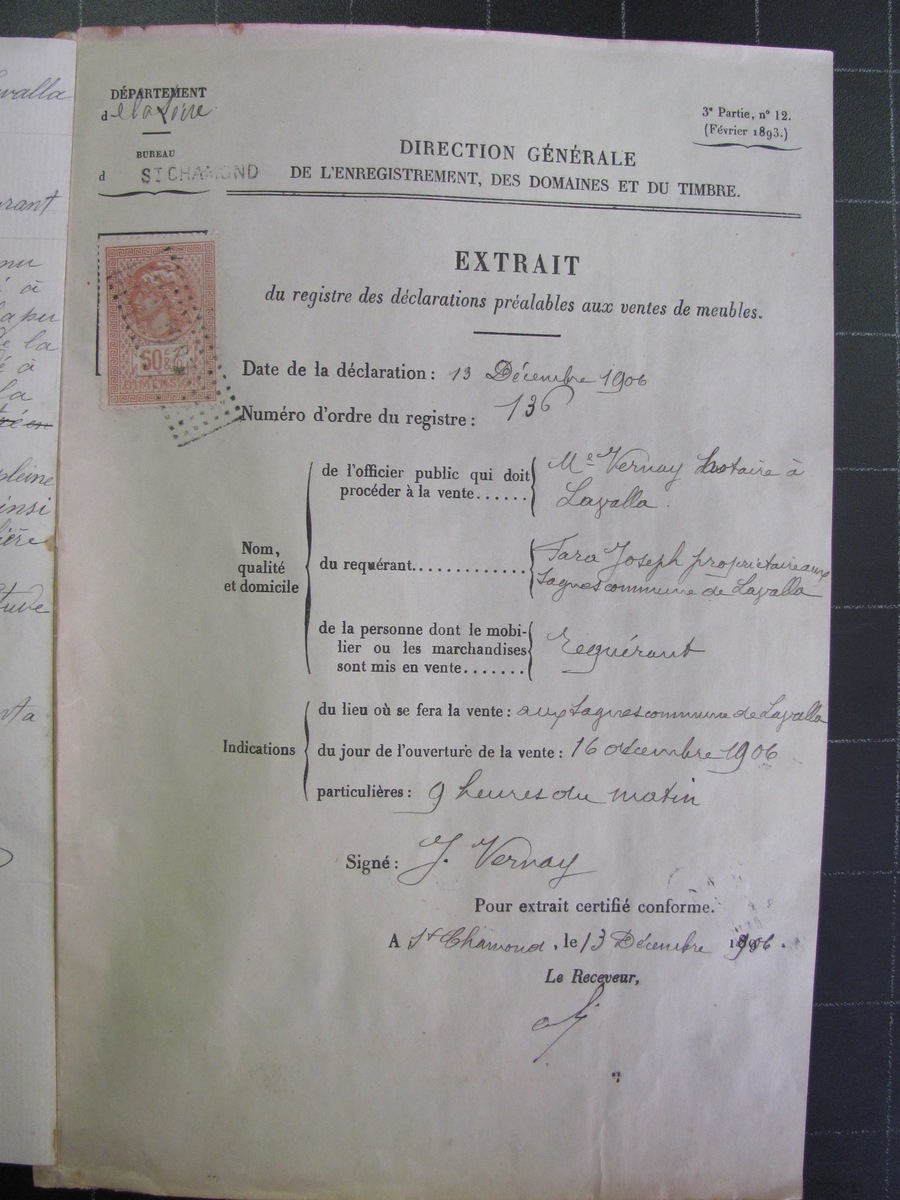 DÉPARTEMENT
de la Loire
BUREAU
d St CHAMOND
3e Partie, n° 12.
(Février 1893.)
DIRECTION GÉNÉRALE
DE L'ENREGISTREMENT, DES DOMAINES ET DU TIMBRE.
EXTRAIT
du registre des déclarations préalables aux ventes de meubles.
50c
DIMENSION
Date de la déclaration : 13 Décembre 1906
Numéro d'ordre du registre : 136
Nom,
qualité
et domicile
de l'officier public qui doit
procéder à la vente......
Me Vernay Notaire à
Lavalla.
du requérant............
Tara Joseph propriétaire aux
Sagnes commune de Lavalla
de la personne dont le mobi-
lier ou les marchandises
sont mis en vente.......
Requérant
Indications
du lieu où se fera la vente : aux Sagnes commune de Lavalla
du jour de l'ouverture de la vente : 16 décembre 1906
particulières : 9 heures du matin
Signé : J. Vernay
Pour extrait certifié conforme.
A St Chamond, le 13 Décembre 1906.
Le Receveur,
valla
rant
nu
à
de la
é à
la
pleine
insi
lière